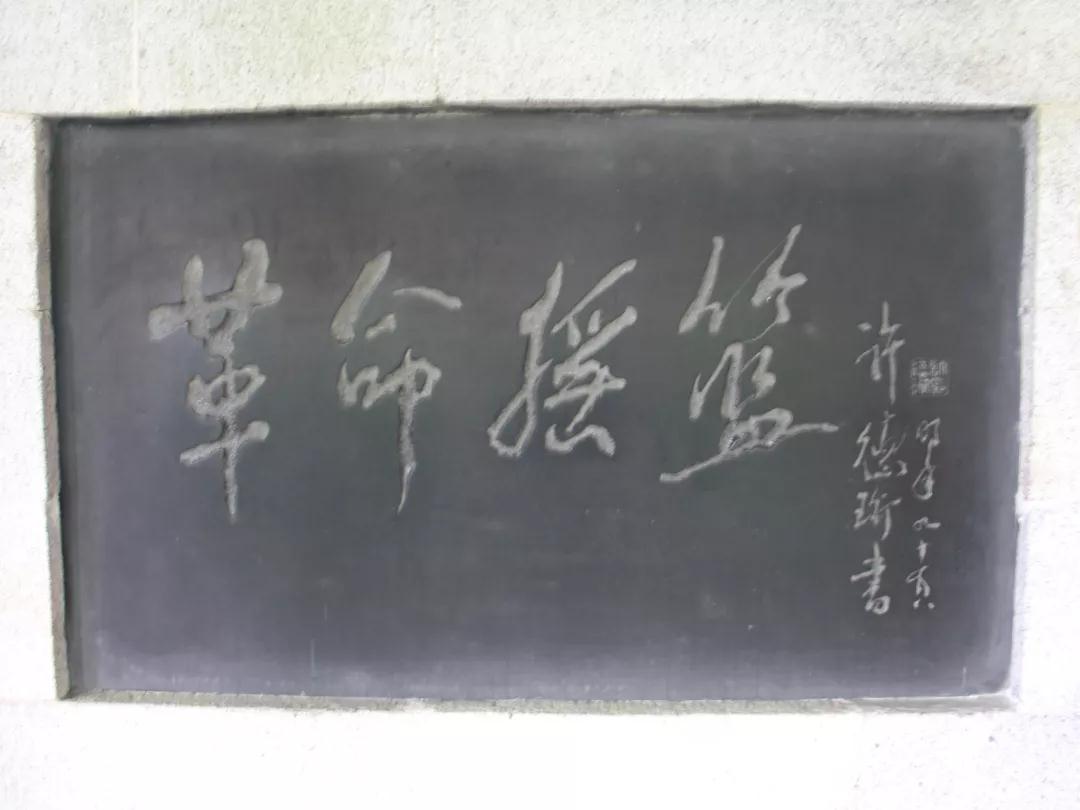 革命摇篮
许德珩书
时年九十有六